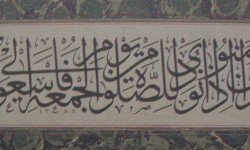 آمنوا إذا نودي للصلوة من يوم الجمعة فاسعوا إلى